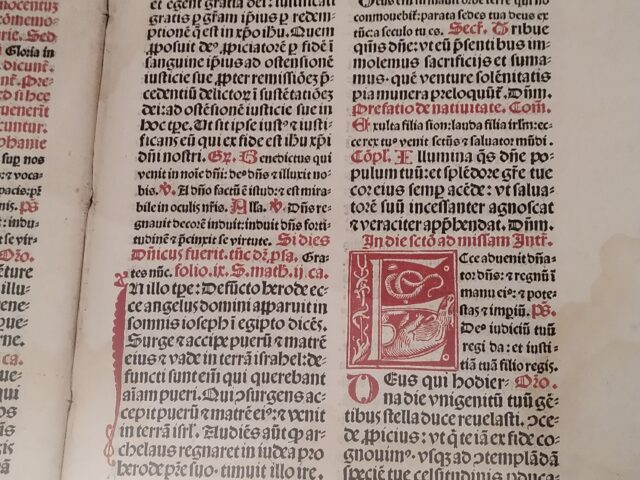 Gloria in
dicunt̄.
nt̄. Pre-
d si hec
uenerit
cuntur.
phanie
sup̱ nos
⁊ voca-
pacis:pr̄
: indu-
se vir-
Oro.
ca.
⁊ egent gratia dei: iustificati
gratis p̱ gr̄am ip̄ius p̱ redem-
ptionē q̄ est in xp̄o ih̄u. Quem
ꝓposuit deꝰ ꝓpiciatorē p̱ fidē ī
sanguine ip̄ius ad ostensionē
iusticie sue ꝓpter remissiōez p̄-
cedentiū delictoꝝ ī sustētatiōez
dei:ad ostēsionē iusticie sue in
hoc tp̄e. Ut sit ip̄se iustꝰ ⁊ iusti-
ficans eū qui ex fide est ih̄u xp̄i
dn̄i nostri. Gr̄. Benedictus qui
venit in noīe dn̄i: deꝰ dn̄s ⁊ illuxit no-
bis. ℣. A dn̄o factū ē istud: ⁊ est mira-
bile in oculis nr̄is. Alla. ℣. Dn̄s re-
gnauit decorē induit: induit dn̄s forti-
tudinē ⁊ p̄cinxit se virtute. Si dies
Dn̄icus fuerit. tūc dr̄. ps̄a. Gra-
tes nūc. folio.ix. S. math. ij ca.
In illo tp̄e: Defūcto herode ec-
ce angelus domini apparuit in
somnis ioseph ī egipto dicēs.
Surge ⁊ accipe puerū ⁊ matrē
eius ⁊ vade in terrā israhel: de-
functi sunt em̄ qui querebant
aīam pueri. Qui ↄsurgens ac-
cepit puerū ⁊ matrē eiꝰ: ⁊ venit
in terrā isrl̄. Audiēs aūt ꝙ ar-
chelaus regnaret in iudea pro
herode pr̄e suo. timuit illo ire.
commouebit̄: parata sedes tua deus ex
tūc: a seculo tu es. Secr̄. Tribue
qūs dn̄e: vt eū p̄sentibus im-
molemus sacrificijs ⁊ suma-
mus. quē venture solēnitatis
pia munera preloquūt̄. Dn̄m.
Prefatio de natiuitate. Com̄.
Exulta filia sion: lauda filia irl̄m: ec-
ce rex tuꝰ venit sctūs ⁊ saluator mūdi.
Cōpl̄. Illumina q̄s dn̄e po-
pulum tuū: et splēdore gr̄e tue
cor eius semp̱ accēde: vt salua-
torē suū incessanter agnoscat
⁊ veraciter app̄hendat. Dn̄m.
In die sctō ad missam Intr̄.
Ecce aduenit dn̄a-
tor dn̄s: ⁊ regnū ī
manu eiꝰ: ⁊ pote-
stas ⁊ imp̱iū. ps̄.
Deꝰ iudiciū tuū
regi da: et iusti-
tiā tuā filio regis.
Deus qui hodier- Oro.
na die vnigenitū tuū gē-
tibus stella duce reuelasti. ↄce-
de ꝓpicius: vt q̄ te iā ex fide co-
gnouimꝰ. vsqꝫ ad ↄtemplādā
speciē tue celsitudinis ꝑduca-